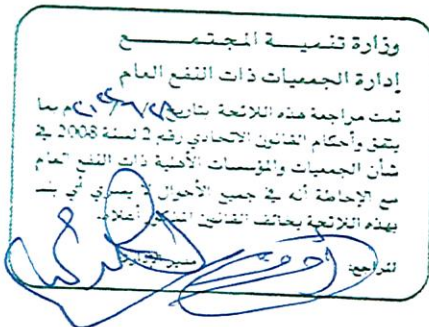 وزارة تنميـــة المجتمـــــع
إدارة الجمعيات ذات النفع العام
تمت مراجعة هذه اللائحة بتاريخ م بما
يتفق وأحكام القانون الاتحادي رقم 2 لسنة 2008 في
شأن الجمعيات والمؤسسات الأهلية ذات النفع العام
مع الإحاطة أنه في جميع الأحوال لا يسري أي بند
بهذه اللائحة يخالف القانون أعلاه.
المراجع: